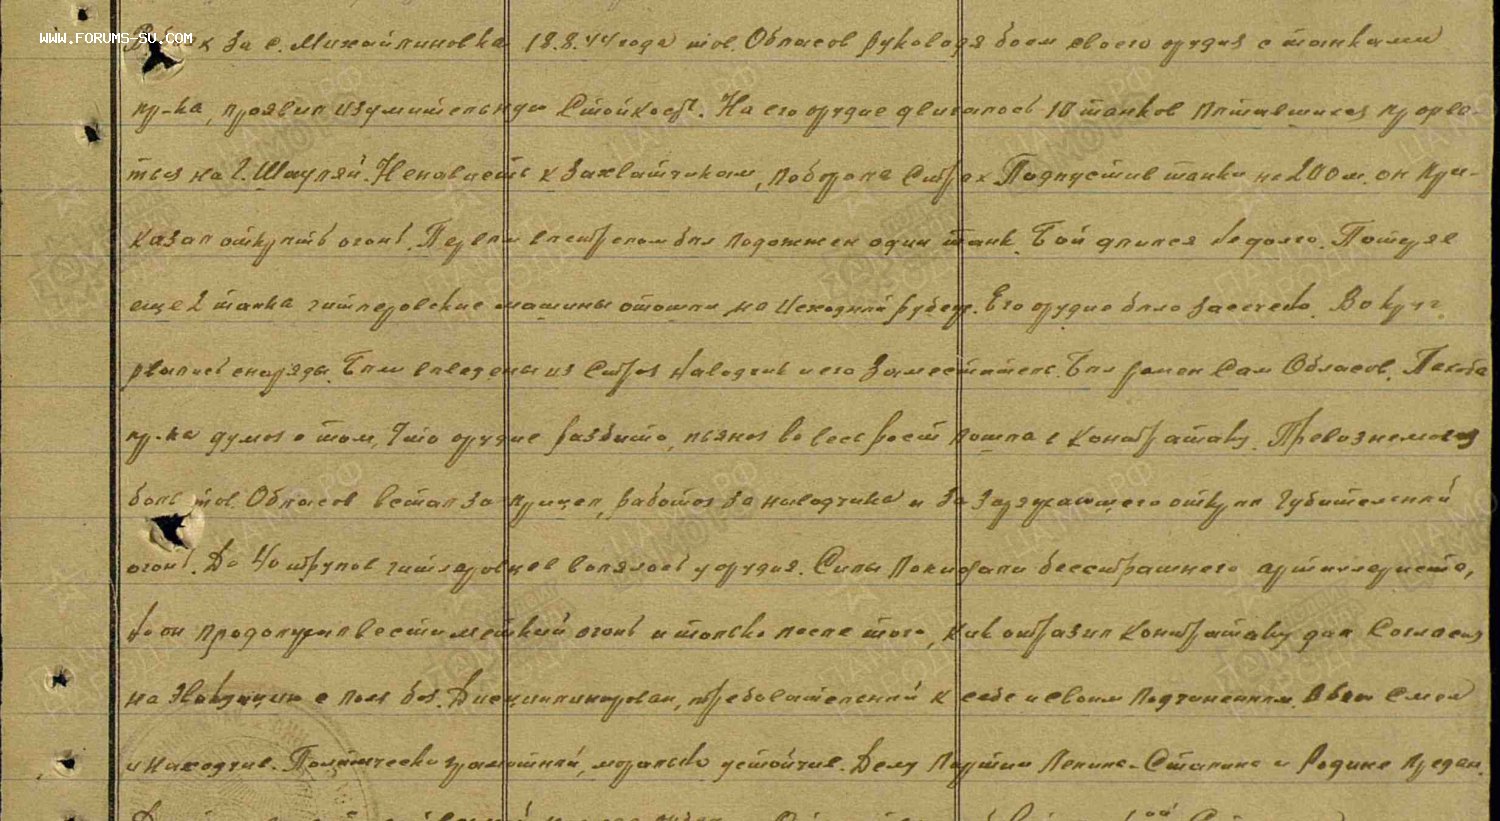 WWW.FORUMS-SU.COM
за с. Михайлиновка 18.8.44 года тов. Обласов руководя боем своего орудия с танками
пр-ка, проявил изумительную стойкость. На его орудие двигалось 10 танков пытавшихся прорва-
ться на г. Шауляй. Ненависть к захватчикам, поборола страх. Подпустив танки на 200 м. он при-
казал открыть огонь. Первым выстрелом был подожжен один танк. Бой длился недолго. Потеряв
еще 2 танка гитлеровские машины отошли на исходный рубеж. Его орудие было засечено. Вокруг
рвались снаряды. Были выведены из строя наводчик и его заместитель. Был ранен сам Обласов. Пехота
пр-ка думая о том, что орудие разбито, пьяная во весь рост пошла в контратаку. Превознемогая
боль тов. Обласов встал за прицел, работая за наводчика и за заряжающего открыл губительный
огонь. До 40 трупов гитлеровцев валялось у орудия. Силы покидали бесстрашного артиллериста,
но он продолжал вести меткий огонь и только после того, как отразил контратаку дал согласия
на эвакуацию с поля боя. Дисциплинирован, требовательный к себе и своим подчиненным. В бою смел
и находчив. Политически грамотный, морально устойчив. Делу Партии Ленина-Сталина и Родине предан.